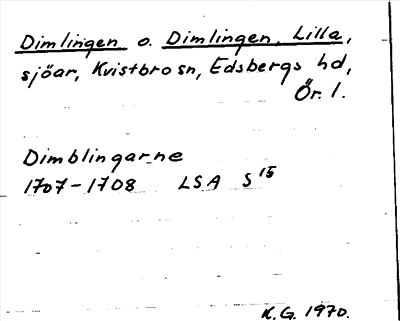 Dimlingen o. Dimlingen, Lilla,
sjöar, Kvistbro sn, Edsbergs hd,
Ör. l.
Dimblingarne
1707-1708 LSA S 15
K.G. 1970.